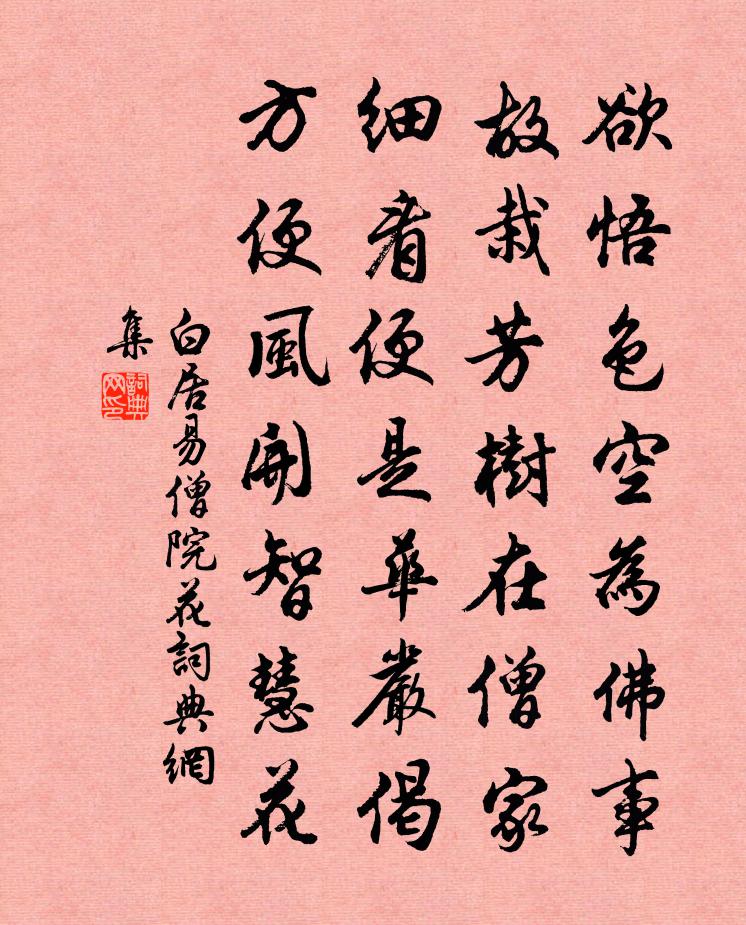 欲悟色空為佛事
故栽芳樹在僧家
細看便是華嚴偈
方便風開智慧花
白居易僧院花詞典網
集
詞典網印